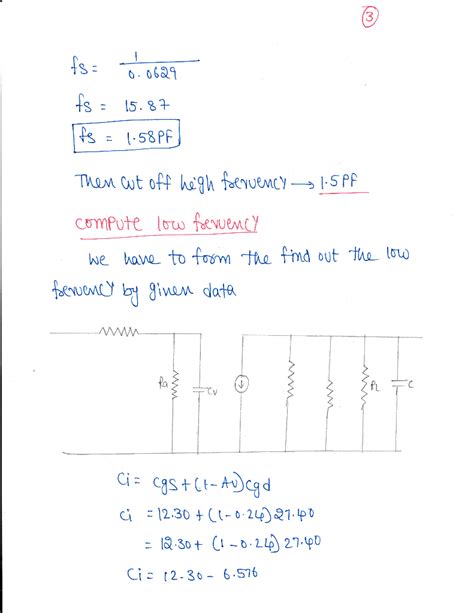 3
fs = 1 / 0.0629
fs = 15.87
fs = 1.58PF
Then cut off heigh freruency → 1.5PF
compute low freruency
we have to form the find out the low
freruency by ginen data
Ra
Cv
RL
C
Ci = Cgs + (1-Av)Cgd
Ci = 12.30 + (1-0.24)27.40
= 12.30 + (1-0.24)27.40
Ci = 12.30 - 6.576